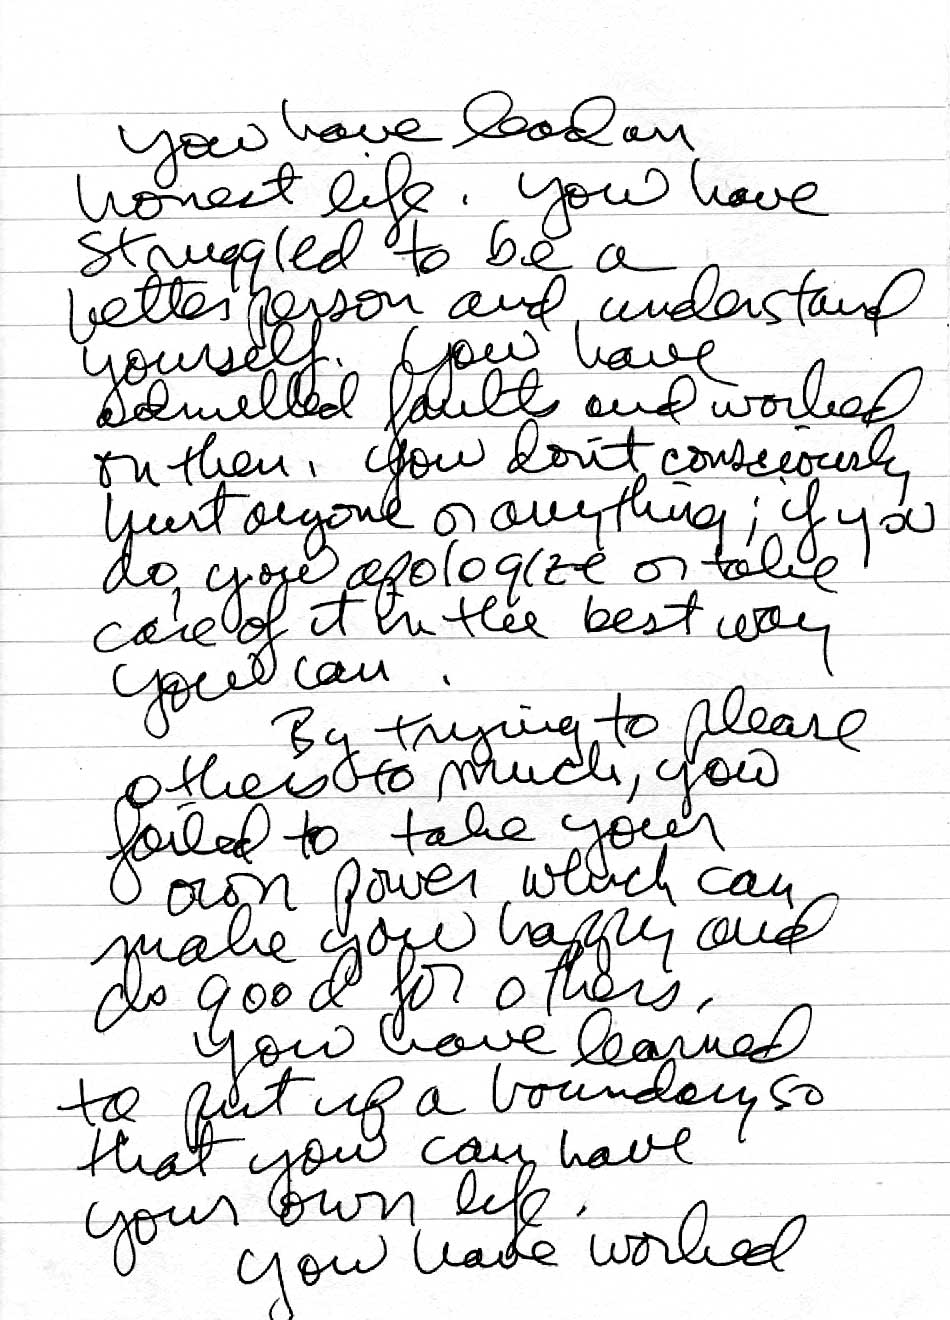 you have lead an
honest life. you have
struggled to be a
better person and understand
yourself. You have
admitted faults and worked
on them. you don't consciously
hurt anyone or anything; if you
do, you apologize or take
care of it in the best way
you can.
By trying to please
others to much, you
failed to take your
own power which can
make you happy and
do good for others.
You have learned
to put up a boundary so
that you can have
your own life.
you have worked